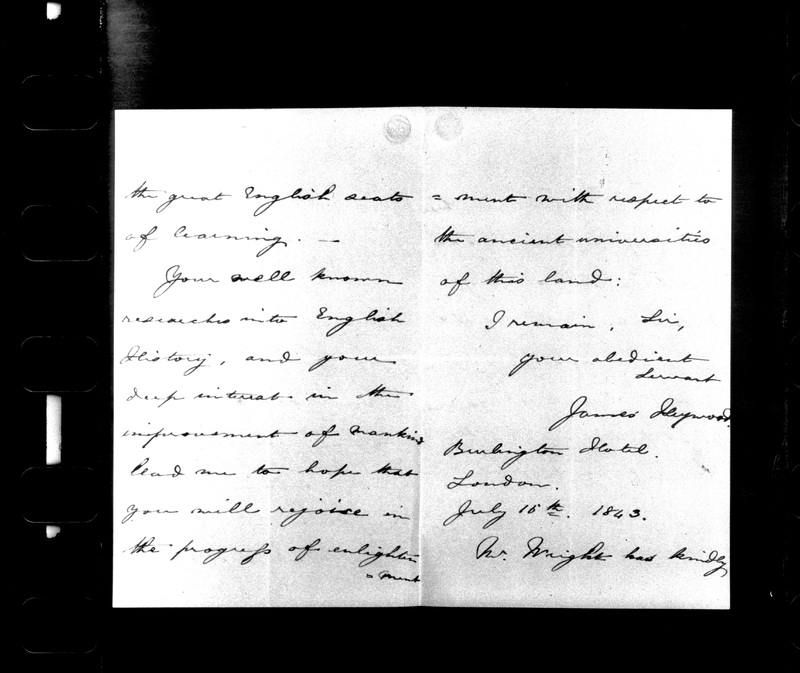 the great English seats
of learning. —
Your well known
researches into English
History, and your
deep interest in the
improvement of mankind
lead me to hope that
you will rejoice in
the progress of enlighten
= ment
= ment with respect to
the ancient universities
of this land:
I remain, Sir,
your obedient
Servant
James Heywood.
Burlington Hotel.
London.
July 15th. 1843.
Mr. Wright has kindly